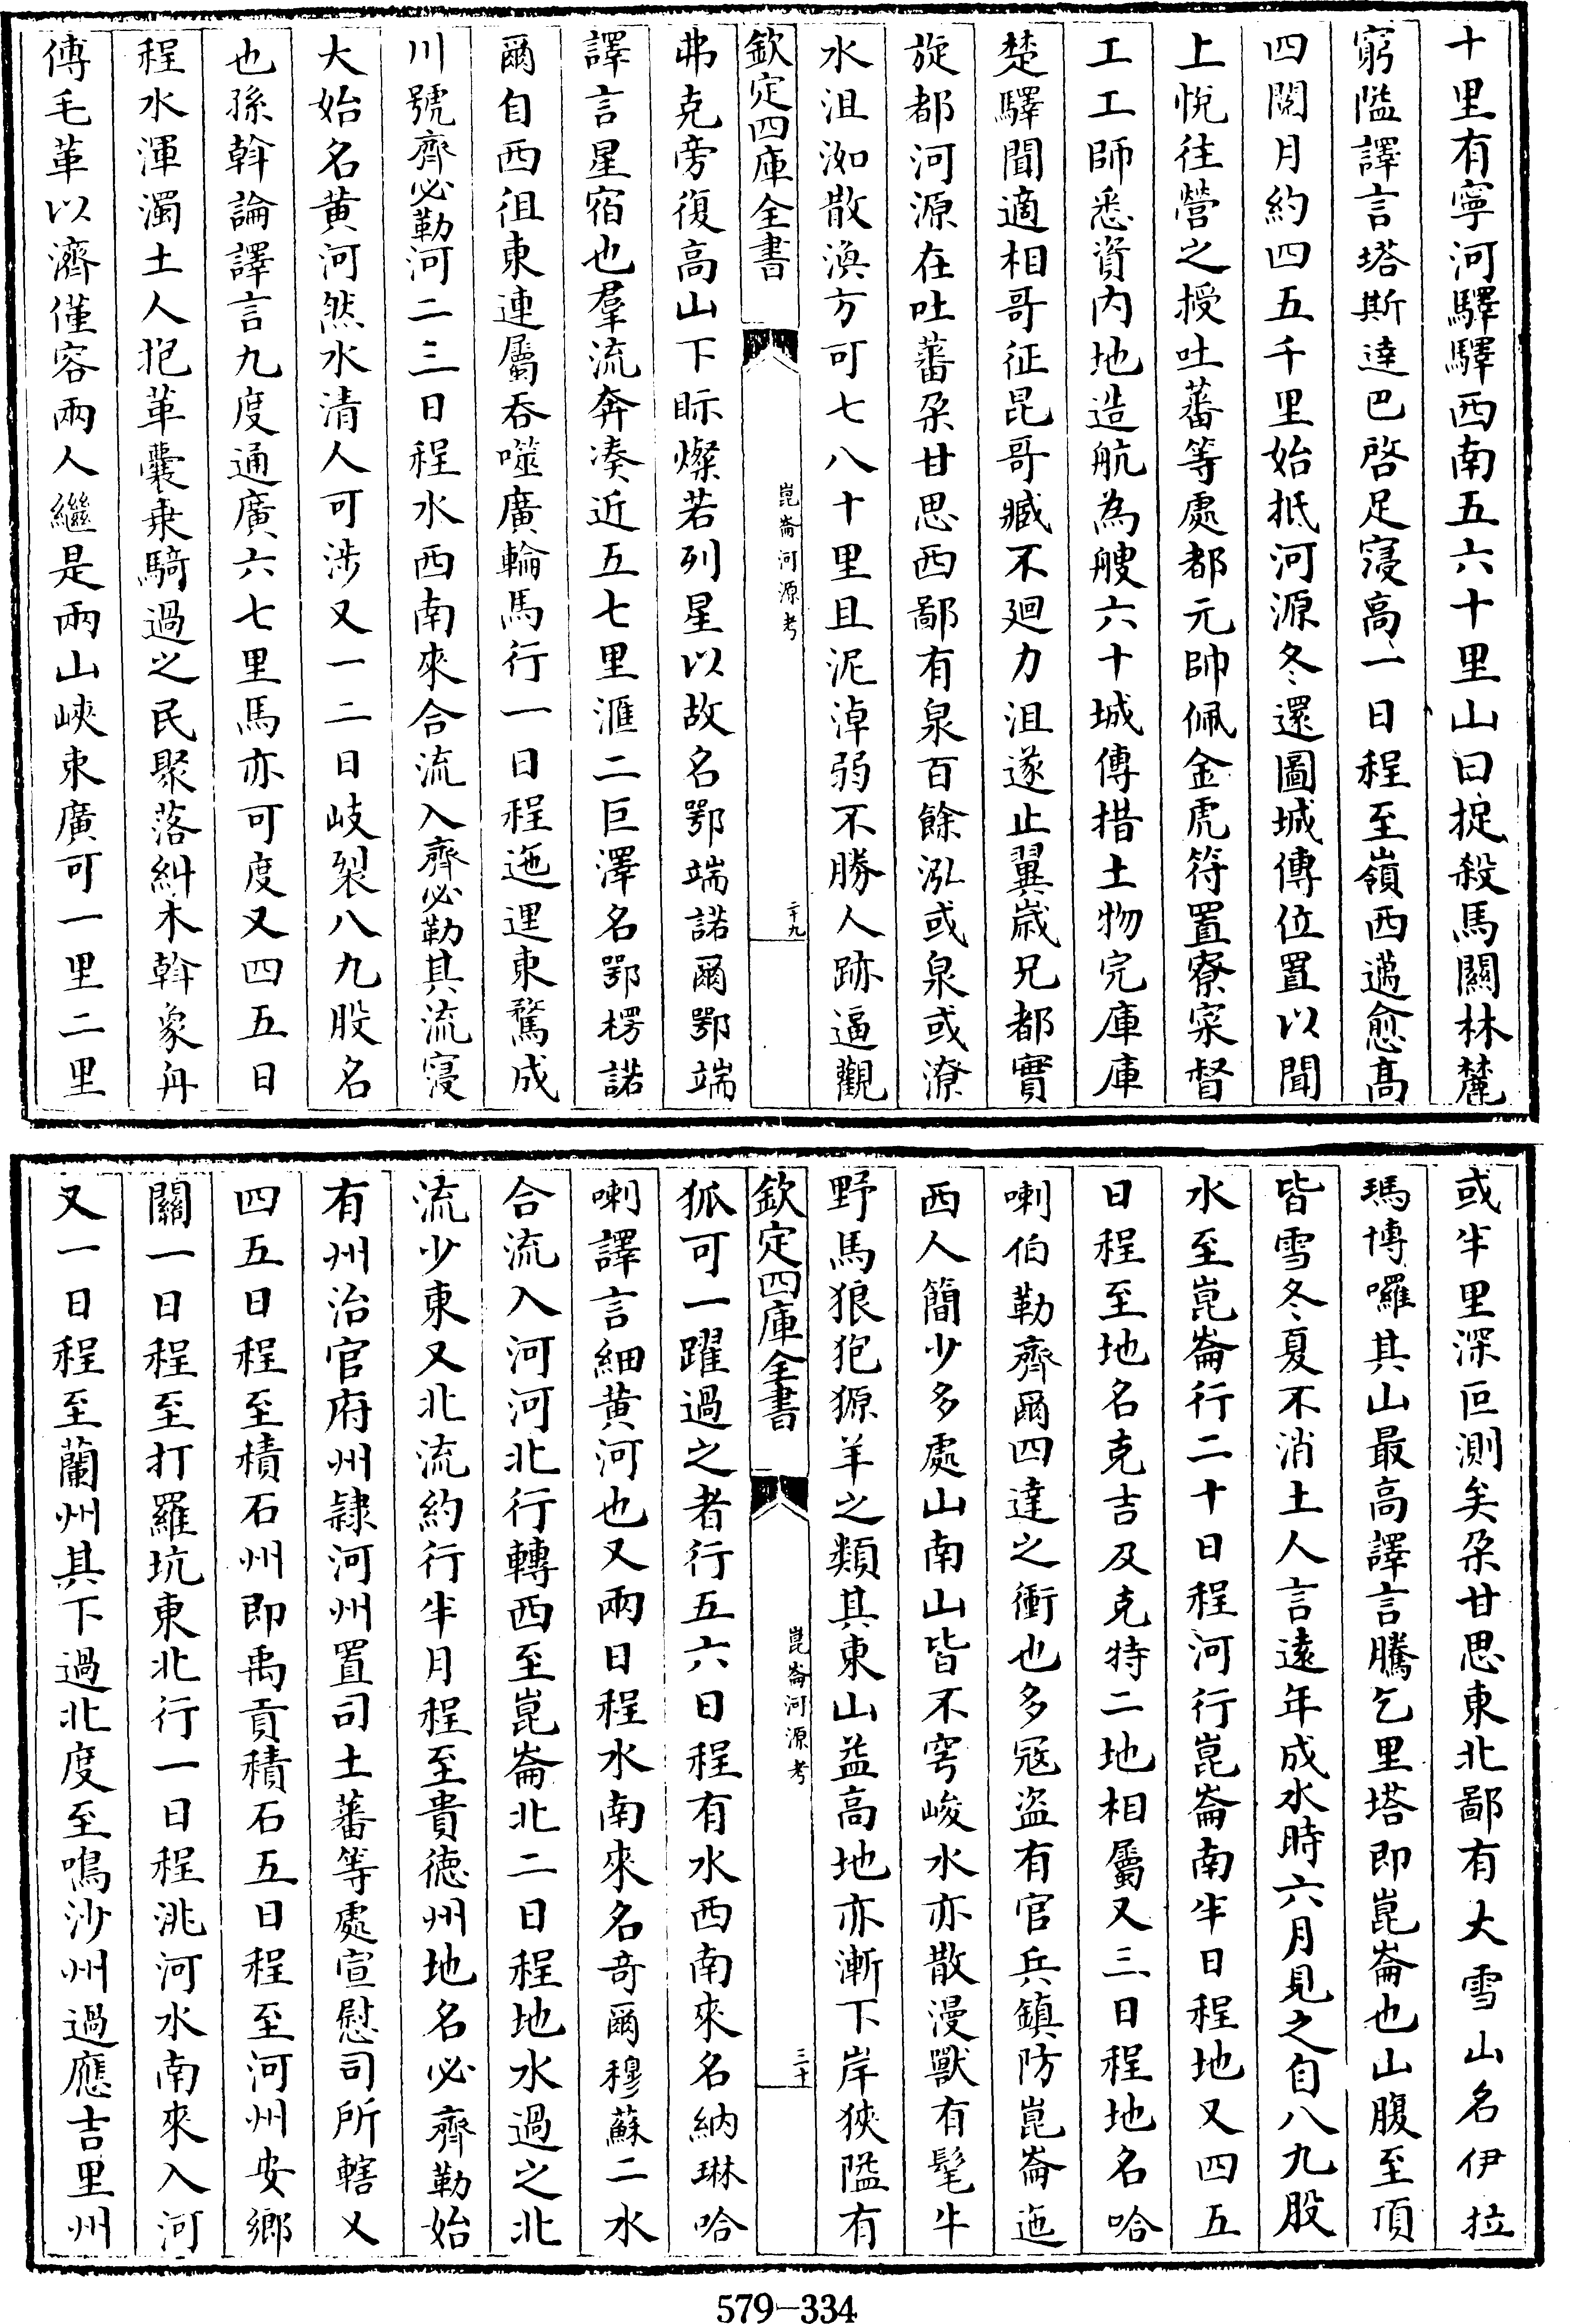 十里有寧河驛驛西南五六十里山曰捉殺馬關林麓
窮隘譯言塔斯達巴啓足寖高一日程至嶺西邁愈高
四閱月約四五千里始抵河源冬還圖城傳位置以聞
上悅往營之授吐蕃等處都元帥佩金虎符置寮寀督
工工師悉資内地造航為艘六十城傳措土物完庫庫
楚驛聞適相哥征昆哥臧不廻力沮遂止翼嵗兄都實
旋都河源在吐蕃朶甘思西鄙有泉百餘泓或泉或潦
水沮洳散渙方可七八十里且泥淖弱不勝人跡逼觀
欽定四庫全書
崑崙河源考
二十九
弗克旁復高山下眎燦若列星以故名鄂端諾爾鄂端
譯言星宿也羣流奔湊近五七里滙二巨澤名鄂楞諾
爾自西徂東連屬吞噬廣輪馬行一日程迤邐東騖成
川號齊必勒河二三日程水西南來合流入齊必勒其流寖
大始名黄河然水清人可涉又一二日岐裂八九股名
也孫斡論譯言九度通廣六七里馬亦可度又四五日
程水渾濁土人抱革囊乗騎過之民聚落糾木斡象舟
傅毛革以濟僅容兩人繼是兩山峽束廣可一里二里
或半里深叵測矣朶甘思東北鄙有大雪山名伊拉
瑪博囉其山最高譯言騰乞里塔即崑崙也山腹至頂
皆雪冬夏不消土人言逺年成水時六月見之自八九股
水至崑崙行二十日程河行崑崙南半日程地又四五
日程至地名克吉及克特二地相屬又三日程地名哈
喇伯勒齊爾四達之衝也多冦盜有官兵鎮防崑崙迤
西人簡少多處山南山皆不穹峻水亦散漫獸有髦牛
野馬狼狍獂羊之類其東山益高地亦漸下岸狹隘有
欽定四庫全書
崑崙河源考
三十
狐可一躍過之者行五六日程有水西南來名納琳哈
喇譯言細黄河也又兩日程水南來名竒爾穆蘇二水
合流入河河北行轉西至崑崙北二日程地水過之北
流少東又北流約行半月程至貴德州地名必齊勒始
有州治官府州隷河州置司土蕃等處宣慰司所轄又
四五日程至積石州即禹貢積石五日程至河州安鄉
關一日程至打羅坑東北行一日程洮河水南來入河
又一日程至蘭州其下過北度至鳴沙州過應吉里州
579-334